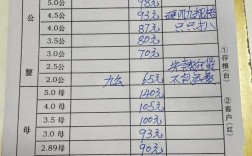 5.0公 98元
4.5公 93元
4.0公 87元 只只封八
3.5公 80元
3.0公 70元
2.5公
2.0公 九公 65元 不包
公蟹
5.0 母 140元
4.0 母 105元
3.5 母 100元
3.0 母 93元
2.89母 90元
母
①存根(白)
②客户(红)